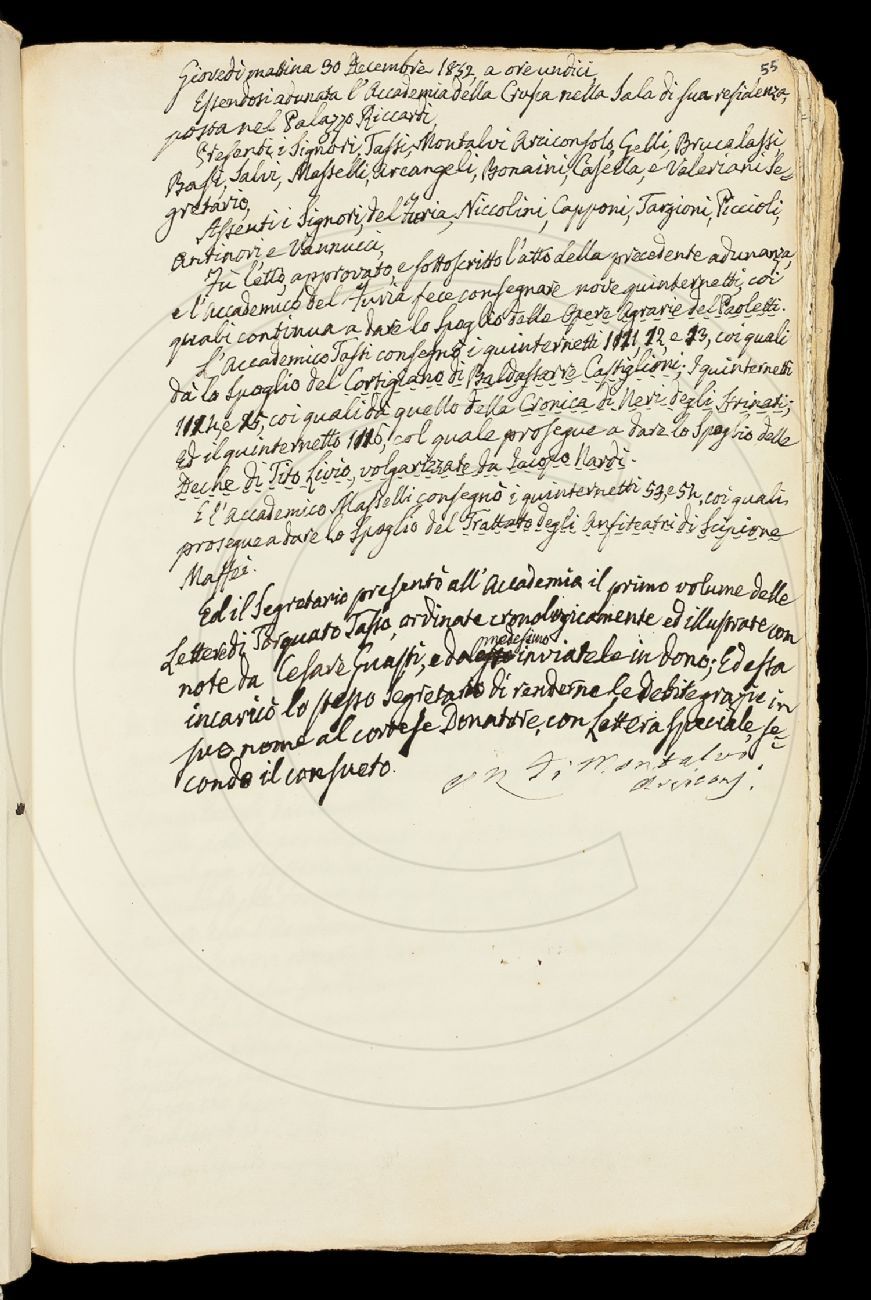 55
Giovedì mattina 30 Decembre 1852, a ore undici,
Essendosi adunata l'Accademia della Crusca nella Sala di sua residenza,
posta nel Palazzo Riccardi,
Presenti i Signori, Tassi, Montalvi Arciconsolo, Gelli, Brucalassi,
Basi, Salvi, Masselli, Arcangeli, Bonaini, Casella, e Valeriani Se-
gretario,
Assenti i Signori, del Furia, Niccolini, Capponi, Targioni, Piccioli,
Antinori e Vannucci,
Fù letto, approvato, e sottoscritto l'atto della precedente adunanza,
e l'Accademico del Furia fece consegnare nove quinternetti, coi
quali continua a dare lo Spoglio delle Opere Agrarie del Paoletti.
L'Accademico Tassi consegnò i quinternetti 12 e 13, coi quali
dà lo Spoglio del Cortigiano di Baldassarre Castiglioni; I quinternetti
e 15, coi quali dà quello della Cronica di Neri degli Strinati;
Ed il quinternetto col quale prosegue a dare lo Spoglio delle
Deche di Tito Livio, volgarizzate da Iacopo Nardi.
E l'Accademico Masselli consegnò i quinternetti 53, e 54, coi quali
prosegue a dare lo Spoglio del Trattato degli Anfiteatri di Scipione
Maffei.
Ed il Segretario presentò all'Accademia il primo volume delle
Lettere di Torquato Tasso, ordinate cronologicamente ed illustrate con
note da Cesare Guasti, e dal medesimo inviatele in dono; Ed essa
incaricò lo stesso Segretario di renderne le debite grazie in
suo nome al cortese Donatore, con Lettera speciale, se-
condo il consueto.
Montalvi
Arcicons.